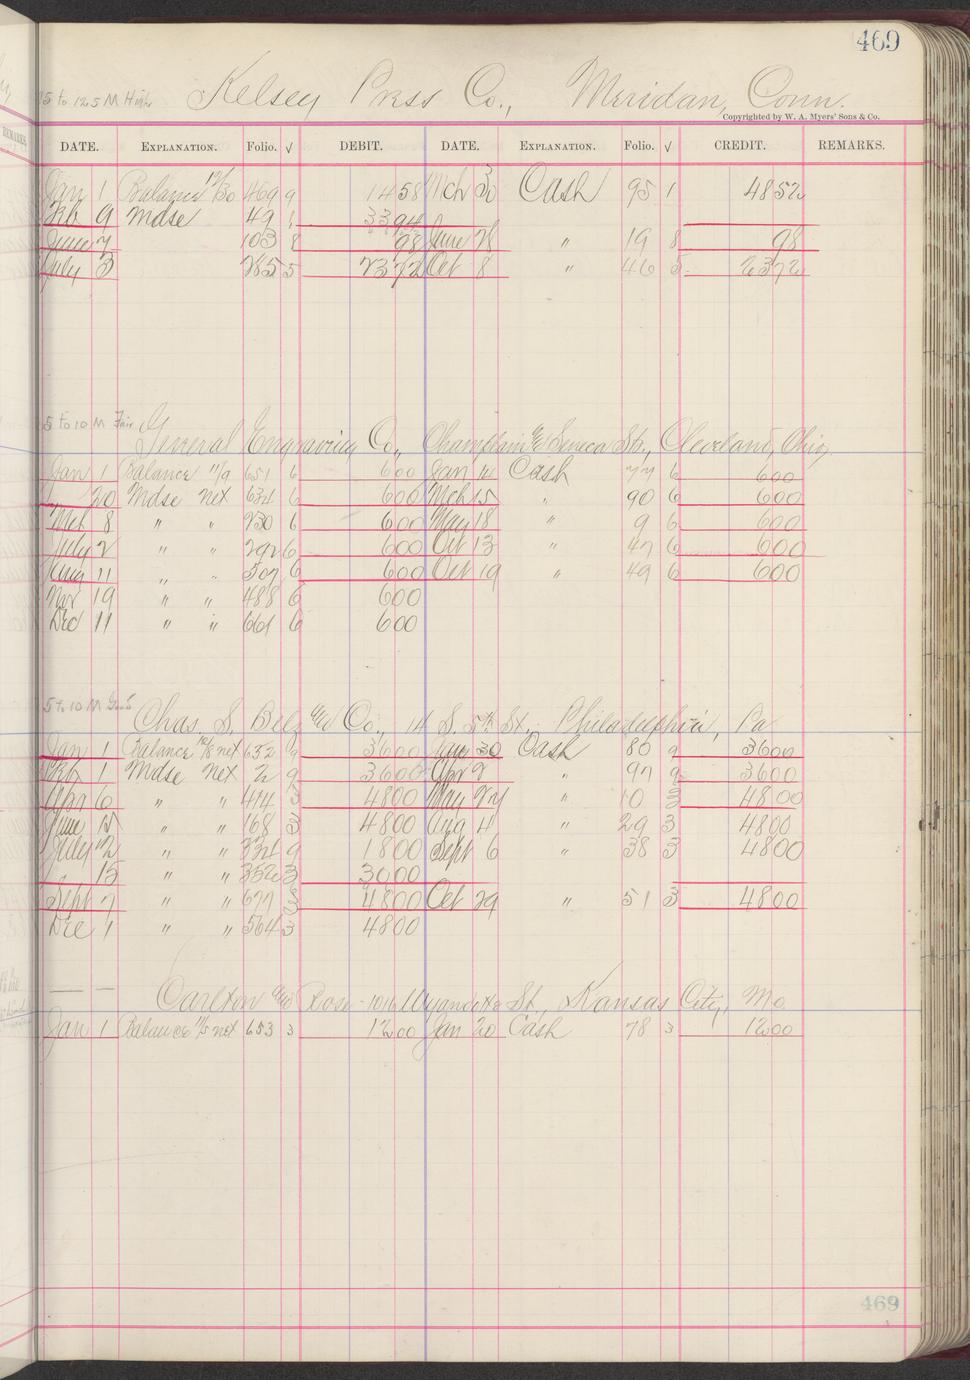 469
5 to 12.5 M High Kelsey Press Co., Meridan, Conn.
Copyrighted by W. A. Myers' Sons & Co.
DATE. EXPLANATION. Folio. √ DEBIT. DATE. EXPLANATION. Folio. √ CREDIT. REMARKS.
Jan 1 Balance 12/30 469 9 1458 Mch 30 Cash 95 1 4852
Feb 9 Mdse 49 1 3394
June 7 103 8 98 June 28 " 19 8 98
July 3 285 5 2372 Oct 8 " 46 5 2372
5 to 10 M Fair General Engraving Co., Champlain & Seneca Sts., Cleveland, Ohio,
Jan 1 Balance 11/9 651 6 600 Jan 14 Cash 77 6 600
" 20 Mdse net 634 6 600 Mch 15 " 90 6 600
Mch 8 " " 230 6 600 May 18 " 9 6 600
July 2 " " 292 6 600 Oct 13 " 47 6 600
Aug 11 " " 507 6 600 Oct 19 " 49 6 600
Nov 19 " " 488 6 600
Dec 11 " " 661 6 600
5 to 10 M Good Chas. S. Belz Co., 14 S. 5th St., Philadelphia, Pa
Jan 1 Balance net 652 9 3600 Jan 30 Cash 80 9 3600
Feb 1 Mdse net 2 9 3600 Apr 2 " 97 9 3600
Apr 6 " " 414 3 4800 May 24 " 10 3 4800
June 15 " " 168 3 4800 Aug 4 " 29 3 4800
July 12 " " 334 9 1800 Sept 6 " 38 3 4800
" 13 " " 352 3 3000
Sept 7 " " 677 3 4800 Oct 29 " 51 3 4800
Dec 1 " " 564 3 4800
Carlton & Rose 1016 Wyandotte St, Kansas City, Mo.
Jan 1 Balance 11/5 net 653 3 1200 Jan 20 Cash 78 3 1200
469